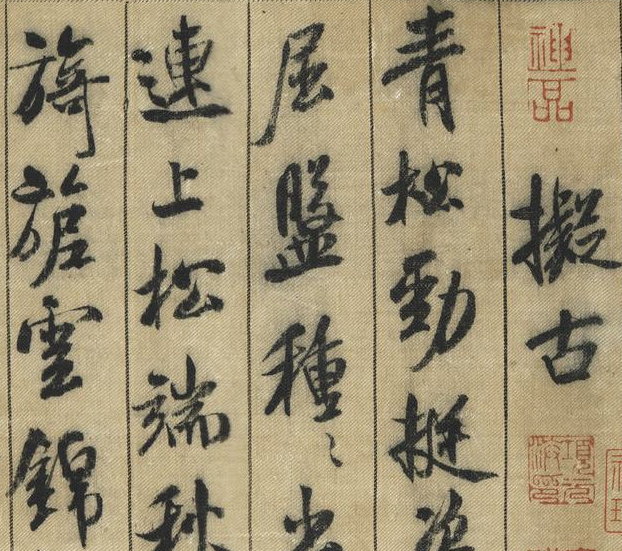 神品
擬古
青松勁挺姿
屈盤種〻出
連上松端秋
旖旎雲錦